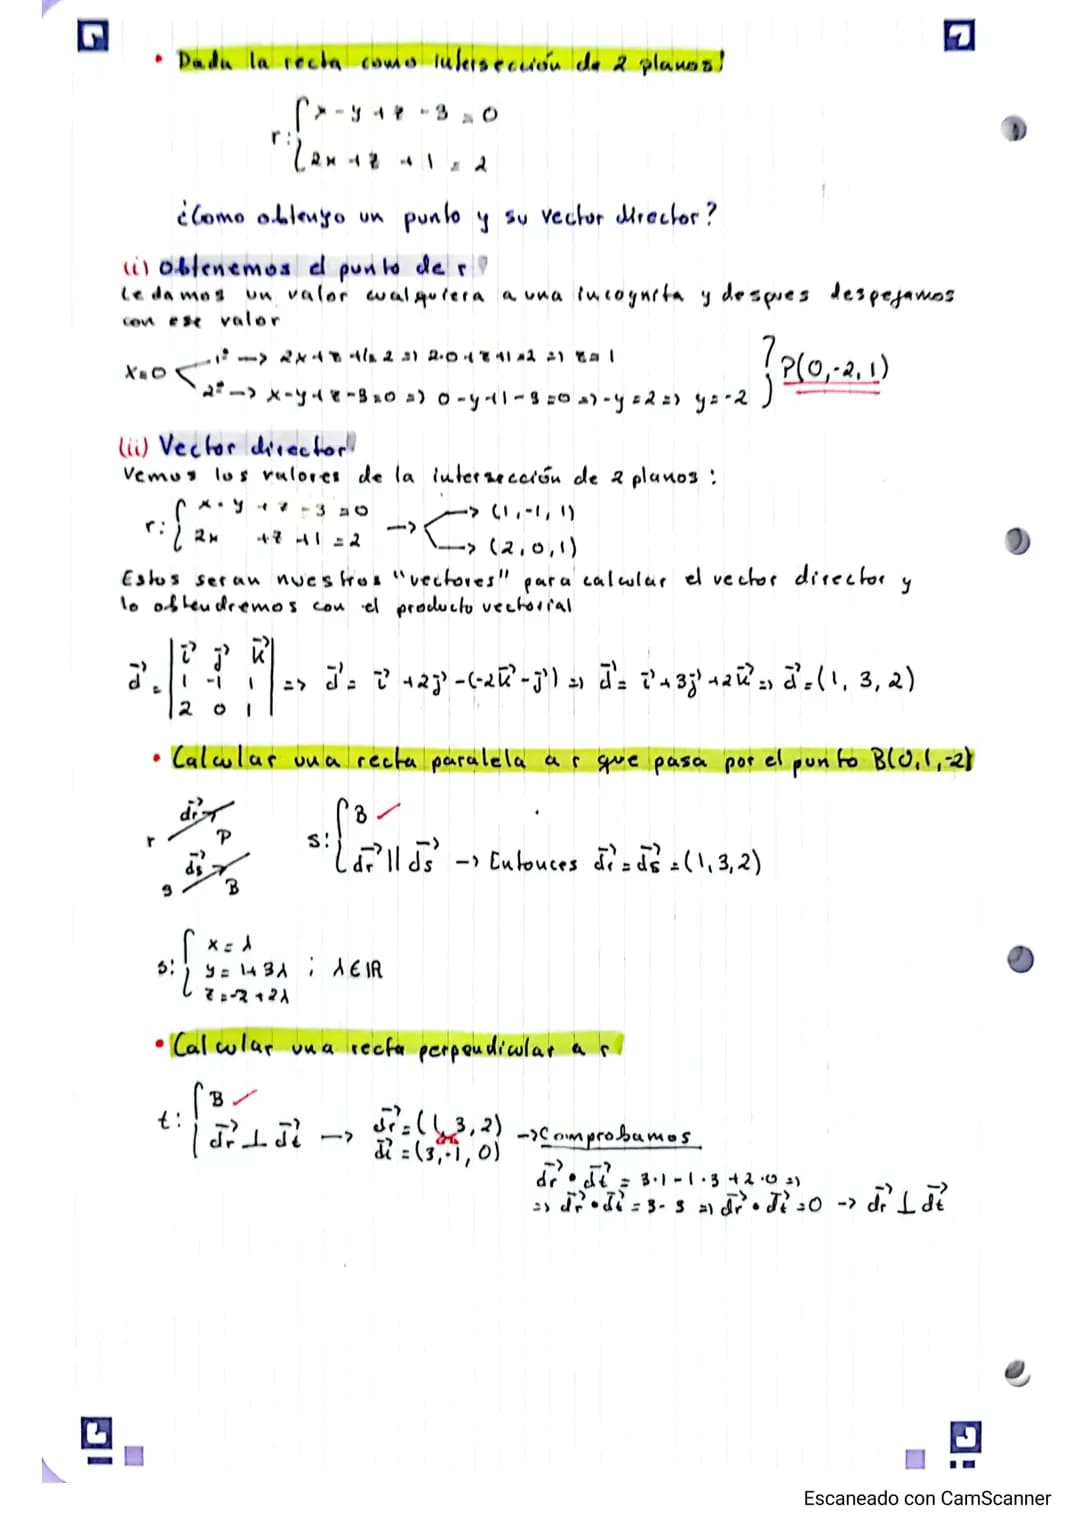 • Dada la recta como intersección de 2 planos!
r: { x - y + z - 3 = 0
2x + z + 1 = 2
¿Como obtengo un punto y su vector director?
(i) Obtenemos el punto de r
Le damos un valor cualquiera a una incognita y despues despejamos
con ese valor
x=0 1º -> 2x+z+1=2 => 2·0+z+1=2 => z=1
2º -> x-y+z-3=0 => 0-y+1-3=0 => -y=2 => y=-2 } P(0,-2,1)
(ii) Vector director
Vemos los valores de la intersección de 2 planos:
r: { x - y + z - 3 = 0 -> (1,-1,1)
2x + z + 1 = 2 -> (2,0,1)
Estos seran nuestros "vectores" para calcular el vector director y
lo obtendremos con el producto vectorial
d⃗ = | i⃗ j⃗ k⃗ |
| 1 -1 1 | => d⃗ = i⃗ + 2j⃗ - (-2k⃗ - j⃗) => d⃗ = i⃗ + 3j⃗ + 2k⃗ => d⃗ = (1, 3, 2)
| 2 0 1 |
• Calcular una recta paralela a r que pasa por el punto B(0,1,-2)
r d⃗r P
s d⃗s B
s: { B ✓
d⃗r || d⃗s -> Entonces d⃗r = d⃗s = (1,3,2)
s: { x = λ
y = 1+3λ ; λ∈ℝ
z = -2+2λ
• Calcular una recta perpendicular a r
t: { B ✓
d⃗r ⊥ d⃗t -> d⃗r = (1,3,2)
d⃗t = (3,-1,0) -> Comprobamos
d⃗r • d⃗t = 3·1-1·3+2·0 =>
=> d⃗r • d⃗t = 3-3 => d⃗r • d⃗t = 0 -> d⃗r ⊥ d⃗t
Escaneado con CamScanner